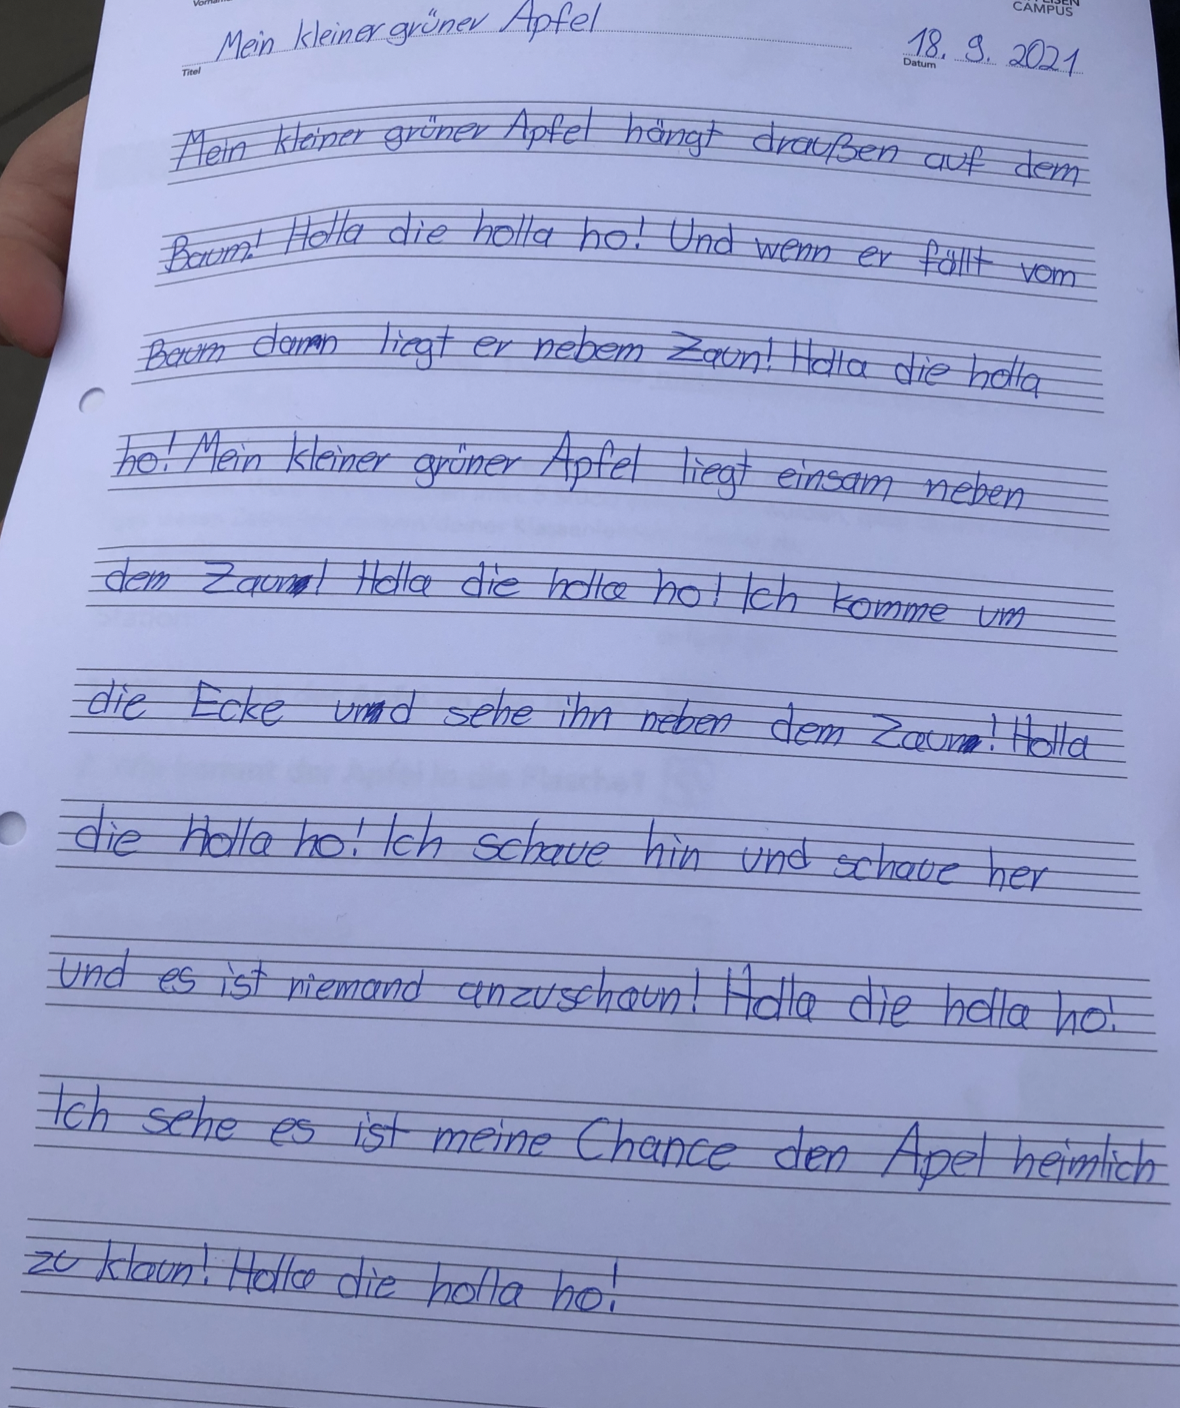 CAMPUS
Mein kleiner grüner Apfel
18. 9. 2021
Titel
Datum
Mein kleiner grüner Apfel hängt draußen auf dem
Baum! Holla die holla ho! Und wenn er fällt vom
Baum dann liegt er nebem Zaun! Holla die holla
ho! Mein kleiner grüner Apfel liegt einsam neben
dem Zaun! Holla die holla ho! Ich komme um
die Ecke und sehe ihn neben dem Zaun! Holla
die Holla ho! Ich schaue hin und schaue her
und es ist niemand anzuschaun! Holla die holla ho!
Ich sehe es ist meine Chance den Apel heimlich
zu klaun! Holla die holla ho!